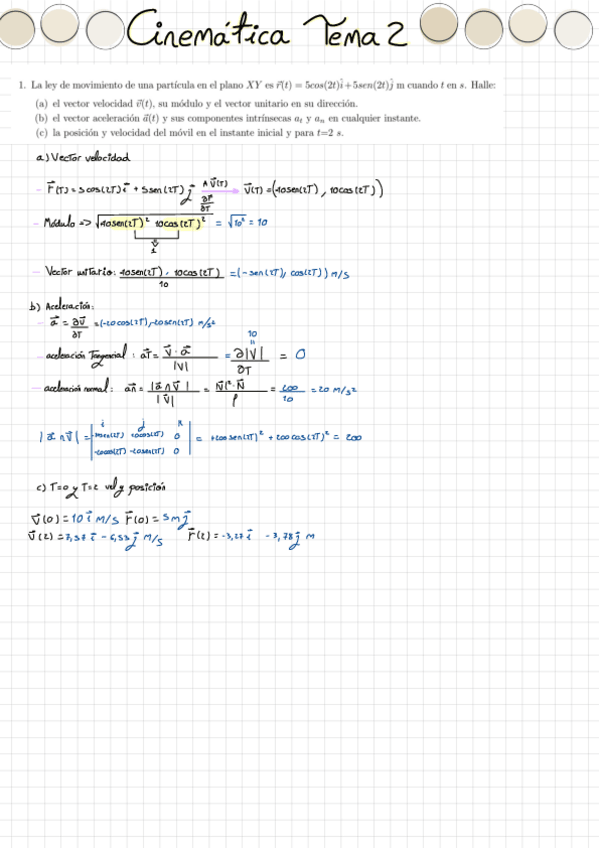 Cinemática Tema 2
1. La ley de movimiento de una partícula en el plano XY es r⃗(t) = 5cos(2t)î+5sen(2t)ĵ m cuando t en s. Halle:
(a) el vector velocidad v⃗(t), su módulo y el vector unitario en su dirección.
(b) el vector aceleración a⃗(t) y sus componentes intrínsecas aₜ y aₙ en cualquier instante.
(c) la posición y velocidad del móvil en el instante inicial y para t=2 s.
a) Vector velocidad
- r⃗(T) = 5cos(2T)i⃗ + 5sen(2T)j⃗ A v⃗(T) ∂r⃗/∂T → v⃗(T) = (-10sen(2T), 10cos(2T))
- Módulo => √(-10sen(2T)² 10cos(2T)²) = √10² = 10
1
- Vector unitario: -10sen(2T), 10cos(2T) / 10 = (-sen(2T), cos(2T)) m/s
b) Aceleración:
- a⃗ = ∂v⃗/∂T = (-20cos(2T), -20sen(2T)) m/s²
10
- aceleración Tangencial: a⃗T = v⃗ · a⃗ / |v| = ∂|v| / ∂T = 0
- aceleración normal: a⃗n = |a⃗ ∧ v⃗| / |v⃗| = |v⃗|² · N⃗ / ρ = 200/10 = 20 m/s²
i j k
|a⃗ ∧ v⃗| = | -10sen(2T) 10cos(2T) 0 | = +200sen(2T)² + 200cos(2T)² = 200
-20cos(2T) -20sen(2T) 0
c) T=0 y T=2 vel y posición
v⃗(0) = 10 i⃗ m/s r⃗(0) = 5m j⃗
v⃗(2) = 7,57 i⃗ - 6,53 j⃗ m/s r⃗(2) = -3,27 i⃗ - 3,78 j⃗ m